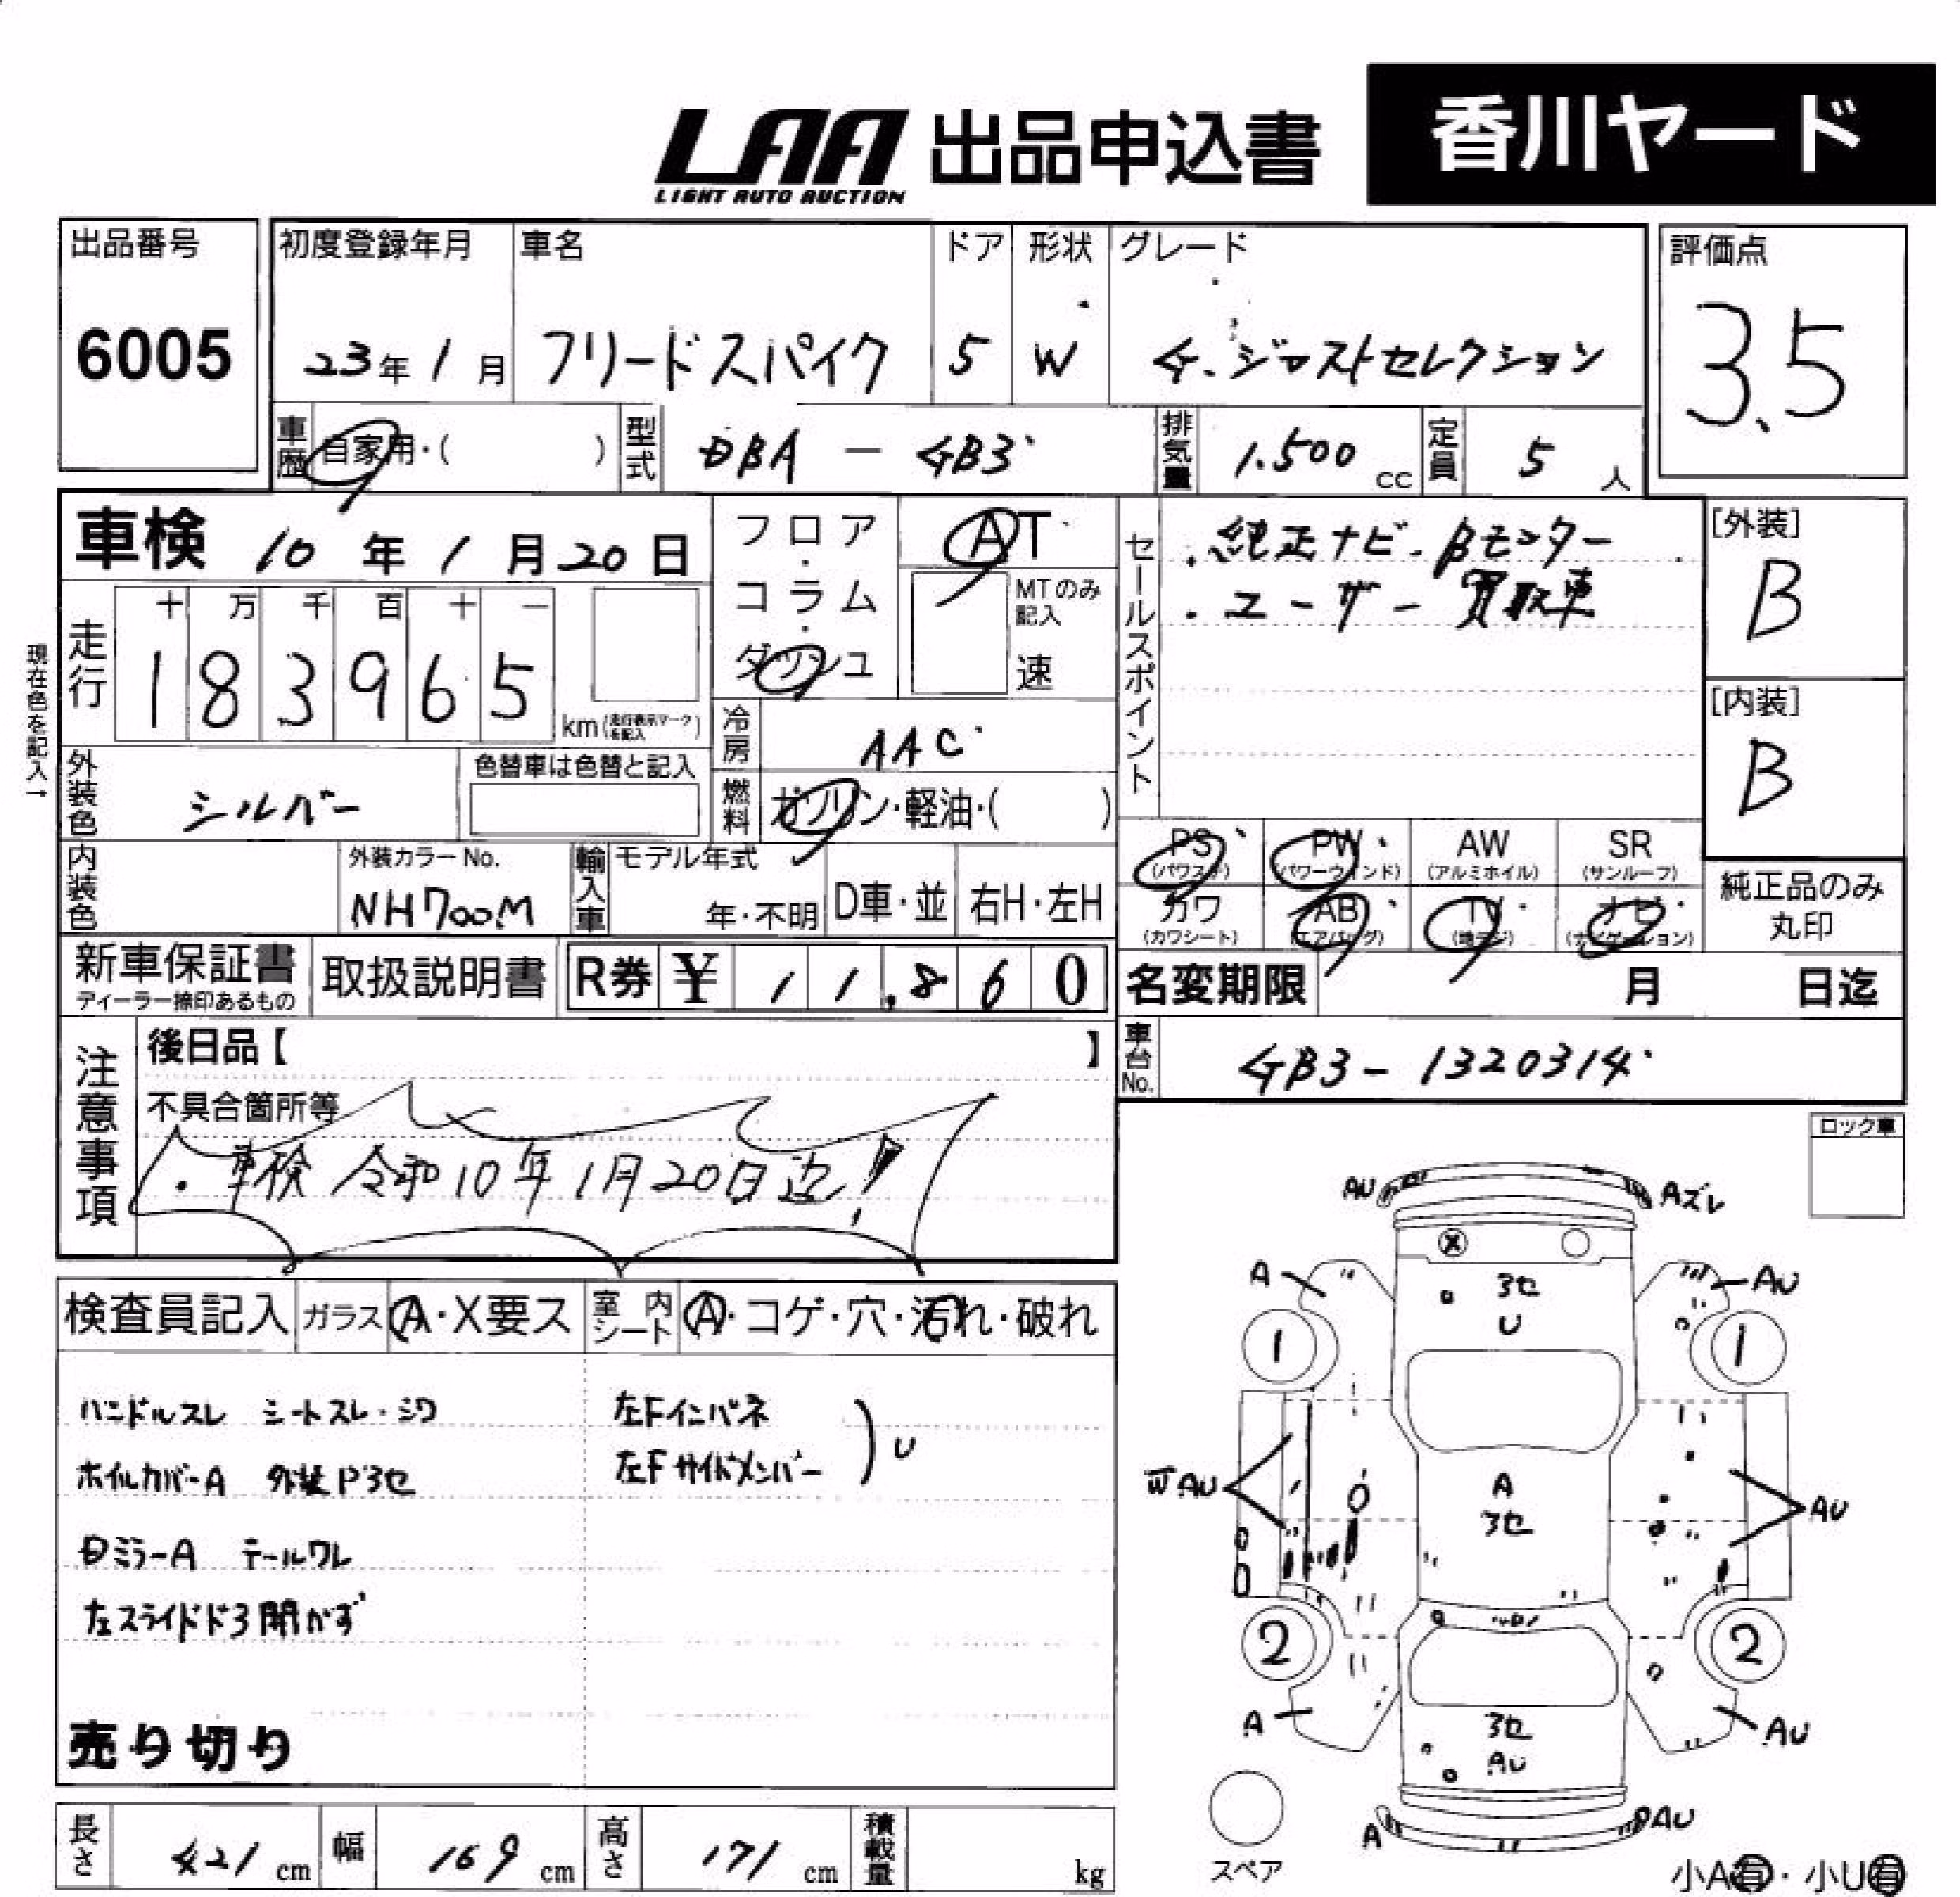 LAA 出品申込書 香川ヤード
LIGHT AUTO AUCTION
出品番号 初度登録年月 車名 ドア 形状 グレード 評価点
6005 23年1月 フリードスパイク 5 W G.ジャストセレクション 3.5
車歴 自家用・( ) 型式 DBA - GB3 排気量 1.500cc 定員 5人
車検 10年1月20日
フロア・コラム・ダッシュ
AT
MTのみ記入
速
セールスポイント
・純正ナビ・Bモニター
・ユーザー買取車
[外装]
B
[内装]
B
現在色を記入→
走行 十万千百十一
183965 km(走行表示マークを記入)
冷房 AAC
外装色 シルバー 色替車は色替と記入
燃料 ガソリン・軽油・( )
内装色 外装カラーNo. NH700M
輸入車 モデル年式 年・不明 D車・並 右H・左H
PS(パワステ) PW(パワーウィンド) AW(アルミホイル) SR(サンルーフ)
カワ(カワシート) AB(エアバッグ) TV(地デジ) ナビ(ナビゲーション)
純正品のみ丸印
新車保証書 取扱説明書 R券 ¥ 11,860
ディーラー捺印あるもの
名変期限 月 日迄
注意事項
後日品【 】
不具合箇所等
・車検 令和10年1月20日迄!
車台No. GB3-1320314
ロック車
検査員記入 ガラス A・X要ス 室内シート A・コゲ・穴・汚れ・破れ
ハンドルスレ シートスレ・シワ 左Fインパネ
ホイルカバーA 外装P3セ 左Fサイドメンバー )U
Dミラ-A テールワレ
左スライドド3開かず
売り切り
長さ 421cm 幅 169cm 高さ 171cm 積載量 kg
AU Aズレ
A 3セ AU
U
1 1
AU A AU
3セ
2 2
A 3セ AU
AU
A AU
スペア
小A有・小U有